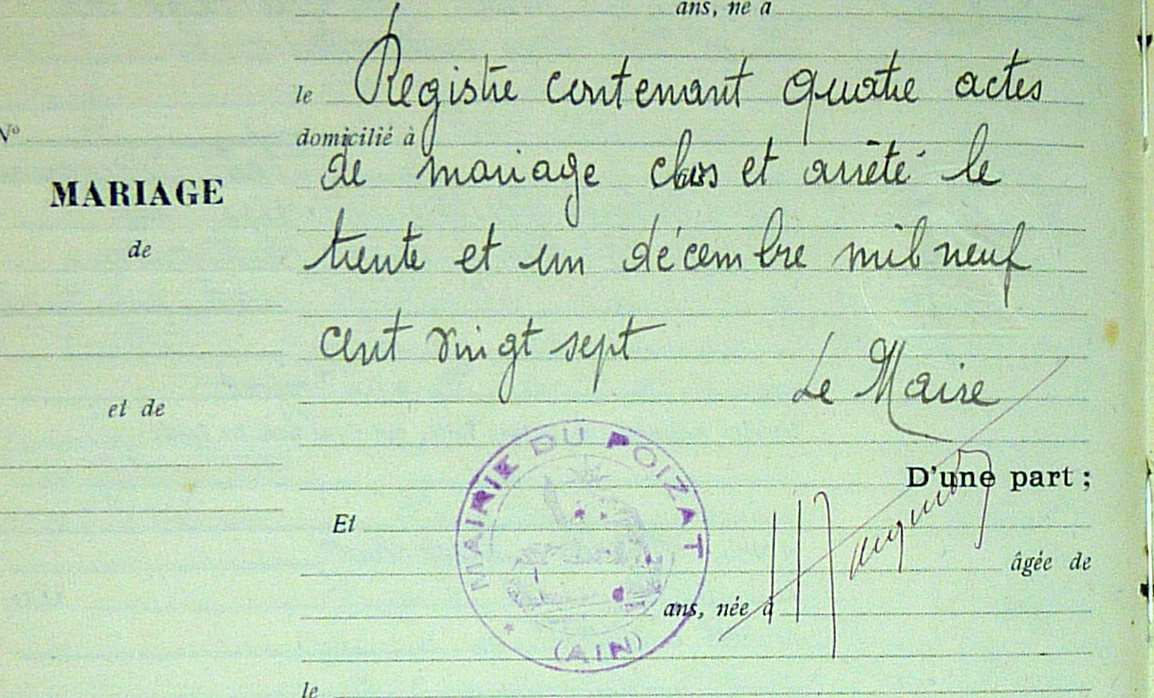 ans, né à
le Registre contenant quatre actes
domicilié à
de mariage clos et arrêté le
trente et un décembre mil neuf
cent vingt sept
Le Maire
N°
MARIAGE
de
et de
D'une part ;
Et
âgée de
ans, née à
le
MAIRIE DU POIZAT
(AIN)